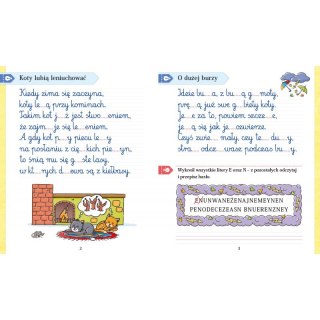 Koty lubią leniuchować
Kiedy zima się zaczyna,
koty le...ą przy kominach.
Takim kot...j...ż jest stwo...eniem,
że zajm...je się le...eniem.
A gdy kot p...y piecu le...y
na posłaniu z cie...kich pie...yn,
to śnią mu się g...ste lasy,
w kt...rych d...ewa są z kiełbasy.
2
O dużej burzy
Idzie bu...a, z bu...ą g...moty,
prę...ą już swe g...biety koty.
Je...e za to, powiem szcze...e,
je...ą się jak je...ozwierze.
Ceyś zuze...mały, czy te...du...y
stra...odce...waze podczas bu...y.
Wykreśl wszystkie litery E oraz N – z pozostałych odczytaj
i przepisz hasło.
ENUNWANEZENAJNEMEYNEN
PENODECZEASN BNUERENZNEY
3